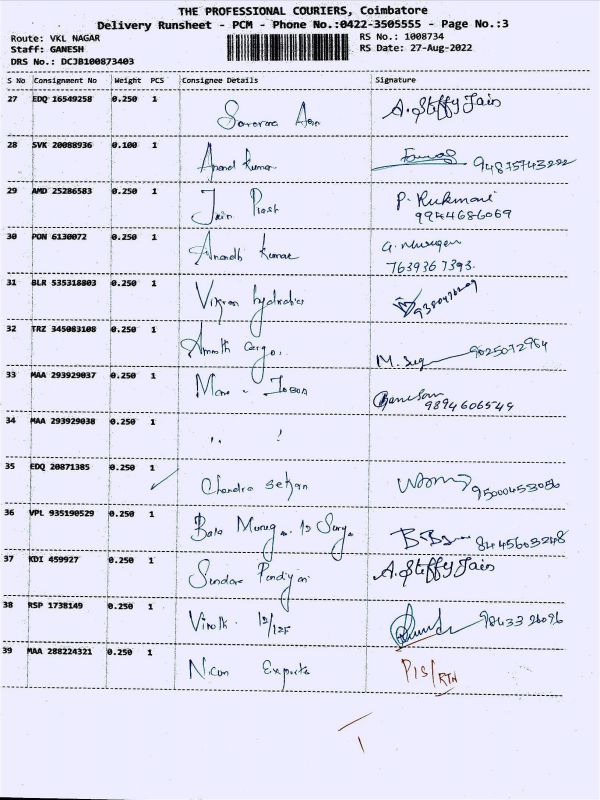 THE PROFESSIONAL COURIERS, Coimbatore
Delivery Runsheet - PCM - Phone No.:0422-3505555 - Page No.:3
Route: VKL NAGAR
RS No.: 1008734
Staff: GANESH
RS Date: 27-Aug-2022
DRS No.: DCJB100873403
S No Consignment No Weight PCS Consignee Details Signature
27 EDQ 16549258 0.250 1 A. Steffy Jain
28 SVK 20088936 0.100 1 Anand Kumar
29 AMD 25286583 0.250 1 Jain P. Rukmani
9944686069
30 PON 6130072 0.250 1 Anandh Kumar G. Murugan
7639367393.
31 BLR 535318803 0.250 1 Vikram hydraulics
32 TRZ 345083108 0.250 1 cargo. 9025072984
33 MAA 293929037 0.250 1 Ganesan
9894606549
34 MAA 293929038 0.250 1 ,, !
35 EDQ 20871385 0.250 1 Chandra Sekan 9500453056
36 VPL 935190529 0.250 1 Bala 8445603248
37 KDI 459927 0.250 1 Sundara Pandiyan A. Steffy Jain
38 RSP 1738149 0.250 1
39 MAA 288224321 0.250 1 Nicon Exports PIS/RTN